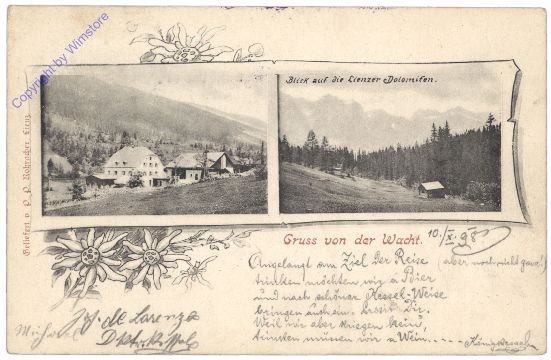 Copyright by Wimstore
Blick auf die Lienzer Dolomiten.
Geliefert v. P. P. Rohracher, Lienz
Gruss von der Wacht.
10./X. 98
Angelangt am Ziel der Reise (aber noch nicht ganz!)
trinken möchten wir a Bier
und nach schöner Hessel-Weise
bringen auch ein Prosit Dir.
Weil wir aber kriegen keins,
trinken müssen wir a Wein....